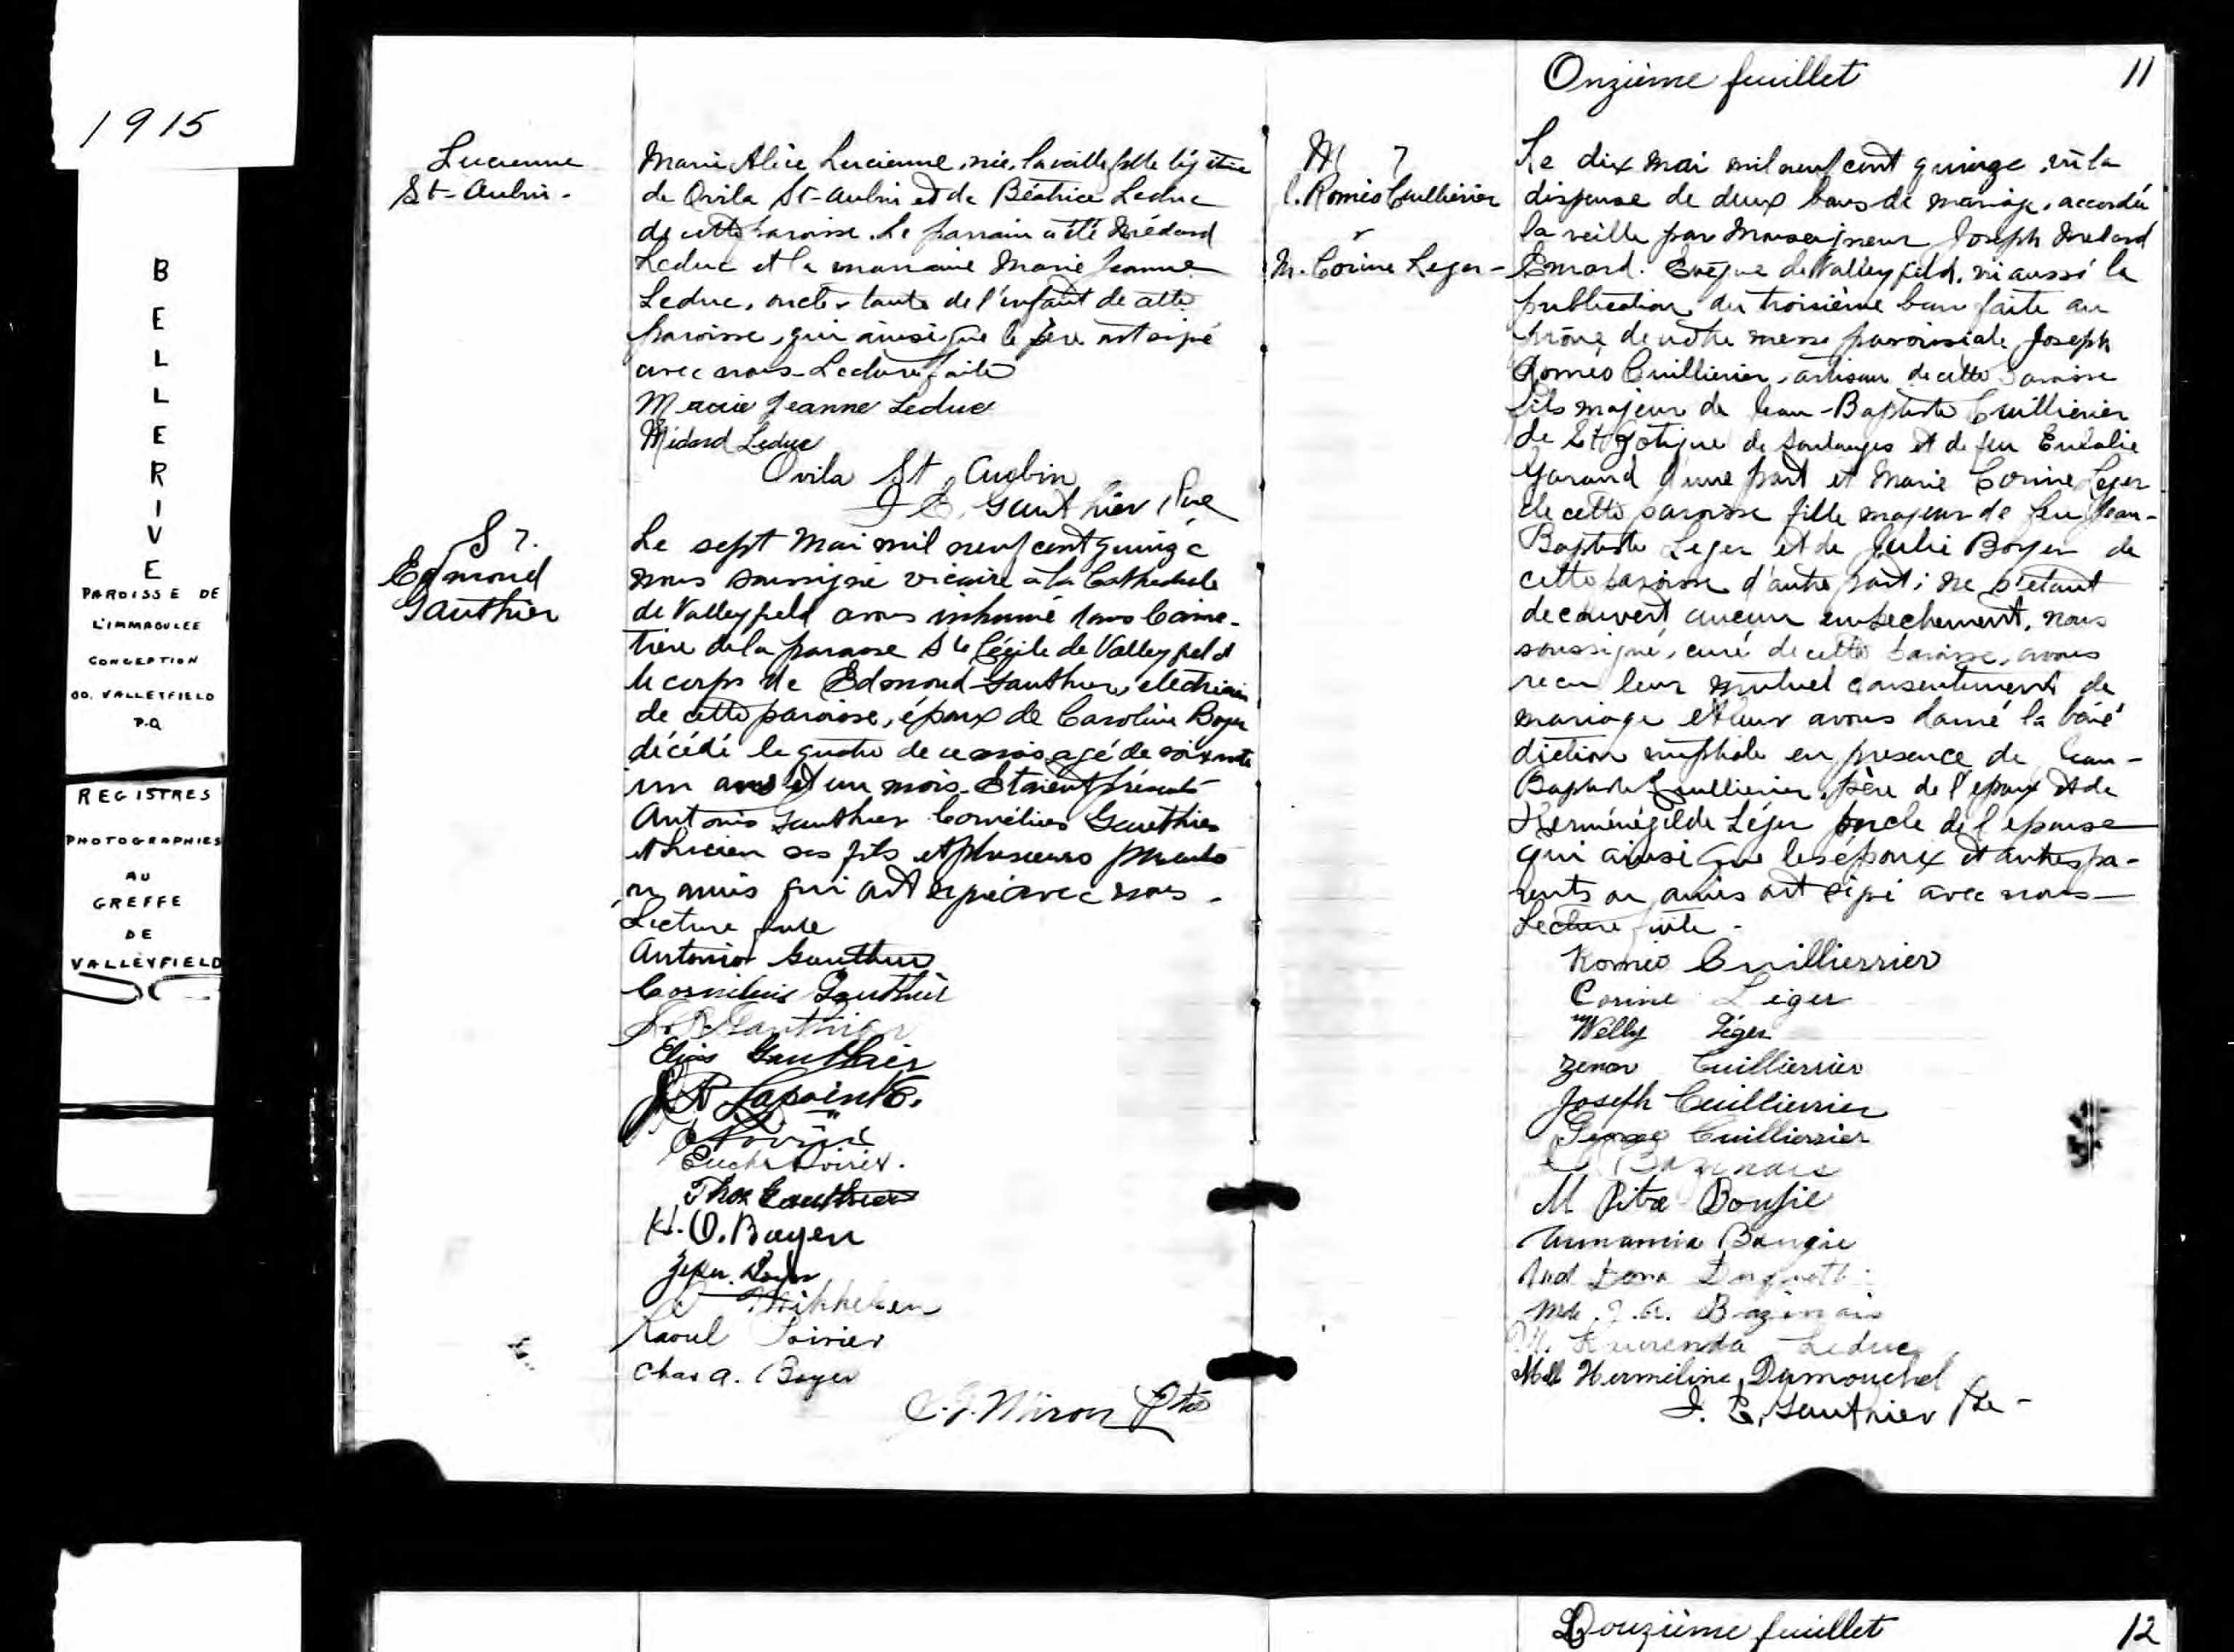 1915
BELLERIVE
PAROISSE DE
L'IMMACULEE
CONCEPTION
CO. VALLEYFIELD
P.Q
REGISTRES
PHOTOGRAPHIES
AU
GREFFE
DE
VALLEYFIELD
Lucienne
St-Aubin-
Marie Alice Lucienne, née la veille fille légitime
de Ovila St-Aubin et de Béatrice Leduc
de cette paroisse. Le parrain a été Médard
Leduc et la marraine Marie Jeanne
Leduc, oncle & tante de l'enfant de cette
paroisse, qui ainsi que le père ont signé
avec nous. Lecture faite
Marie Jeanne Leduc
Médard Leduc
Ovila St Aubin
J. E. Gauthier, Ptre
S 7.
Edmond
Gauthier
Le sept Mai mil neuf cent quinze
nous soussigné vicaire à la Cathédrale
de Valleyfield avons inhumé dans le cime-
tière de la paroisse Ste Cécile de Valleyfield
le corps de Edmond Gauthier, électricien
de cette paroisse, époux de Caroline Boyer
décédé le quatre de ce mois agé de soixante
un ans et un mois. Etaient présents
Antonio Gauthier Cornélius Gauthier
et Lucien ses fils et plusieurs parents
ou amis qui ont signé avec nous.
Lecture faite
Antonio Gauthier
Cornelius Gauthier
Gauthier
Elias Gauthier
Lapointe.
Poirier.
Thos Gauthier
H. O. Boyer
Boyer
Raoul Poirier
Chas A. Boyer
C. J. Miron Ptre
Onzième feuillet 11
M 7
J. Roméo Cuillierier
&
M. Corine Leger-
Le dix mai mil neuf cent quinze, vu la
dispense de deux bans de mariage, accordée
la veille par Monseigneur Joseph Médard
Emard. Evêque de Valleyfield, vu aussi la
publication du troisième ban faite au
prône de notre messe paroissiale, Joseph
Roméo Cuillierier, artisan de cette paroisse
fils majeur de Jean-Baptiste Cuillierier
de St Zotique de Soulanges et de feu Eulalie
Garand d'une part et Marie Corine Leger
de cette paroisse fille majeure de feu Jean-
Baptiste Leger et de Julie Boyer de
cette paroisse d'autre part; ne s'étant
découvert aucun empechement, nous
soussigné, curé de cette paroisse, avons
reçu leur mutuel consentement de
mariage et leur avons donné la béné
diction nuptiale en présence de Jean-
Baptiste Cuillierier, père de l'époux et de
Herménégilde Léger oncle de l'épouse
qui ainsi que les époux et autres pa-
rents ou amis ont signé avec nous-
Lecture faite-
Roméo Cuillierrier
Corine Léger
Welly Léger
Zenon Cuillierrier
Joseph Cuillierrier
George Cuillierrier
Bazinais
M Pitre Bougie
Bougie
Dona
Mde J. A. Bazinais
Leduc
Mll Hermeline Dumouchel
J. E. Gauthier Ptre-
Douzième feuillet 12